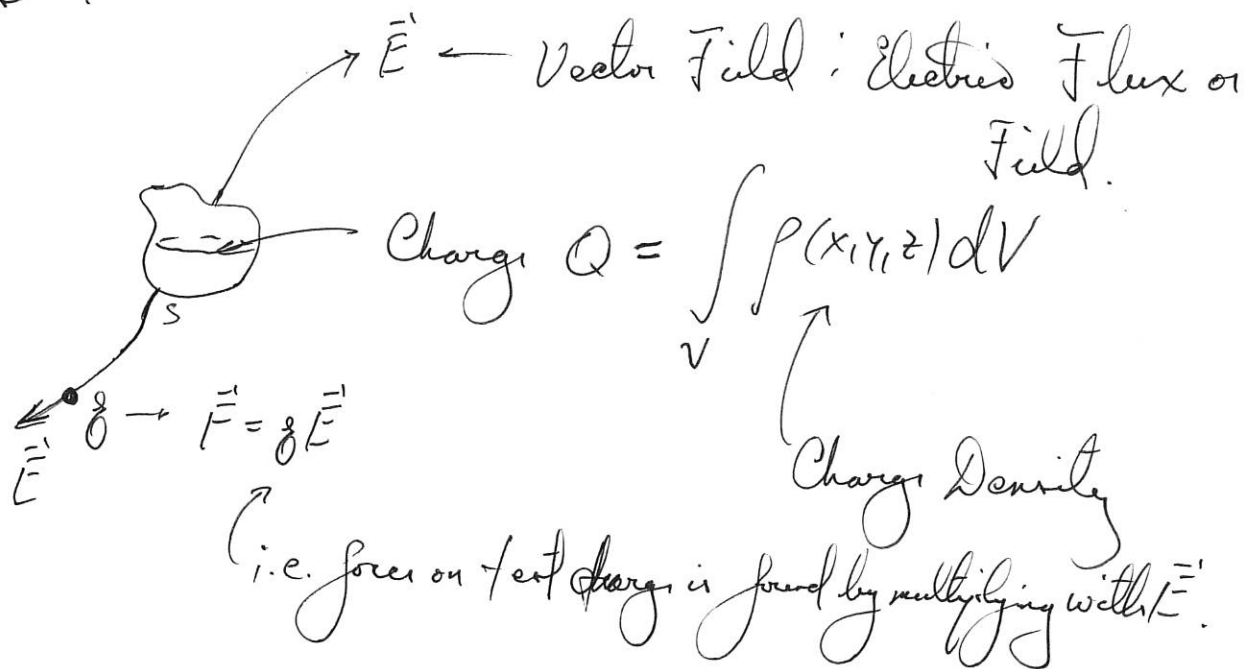 E⃗ ← Vector Field : Electric Flux or
Field.
Charge Q = ∫_V ρ(x,y,z) dV
S
E⃗ q → F⃗ = qE⃗
Charge Density
i.e. force on test charge is found by multiplying with E⃗.